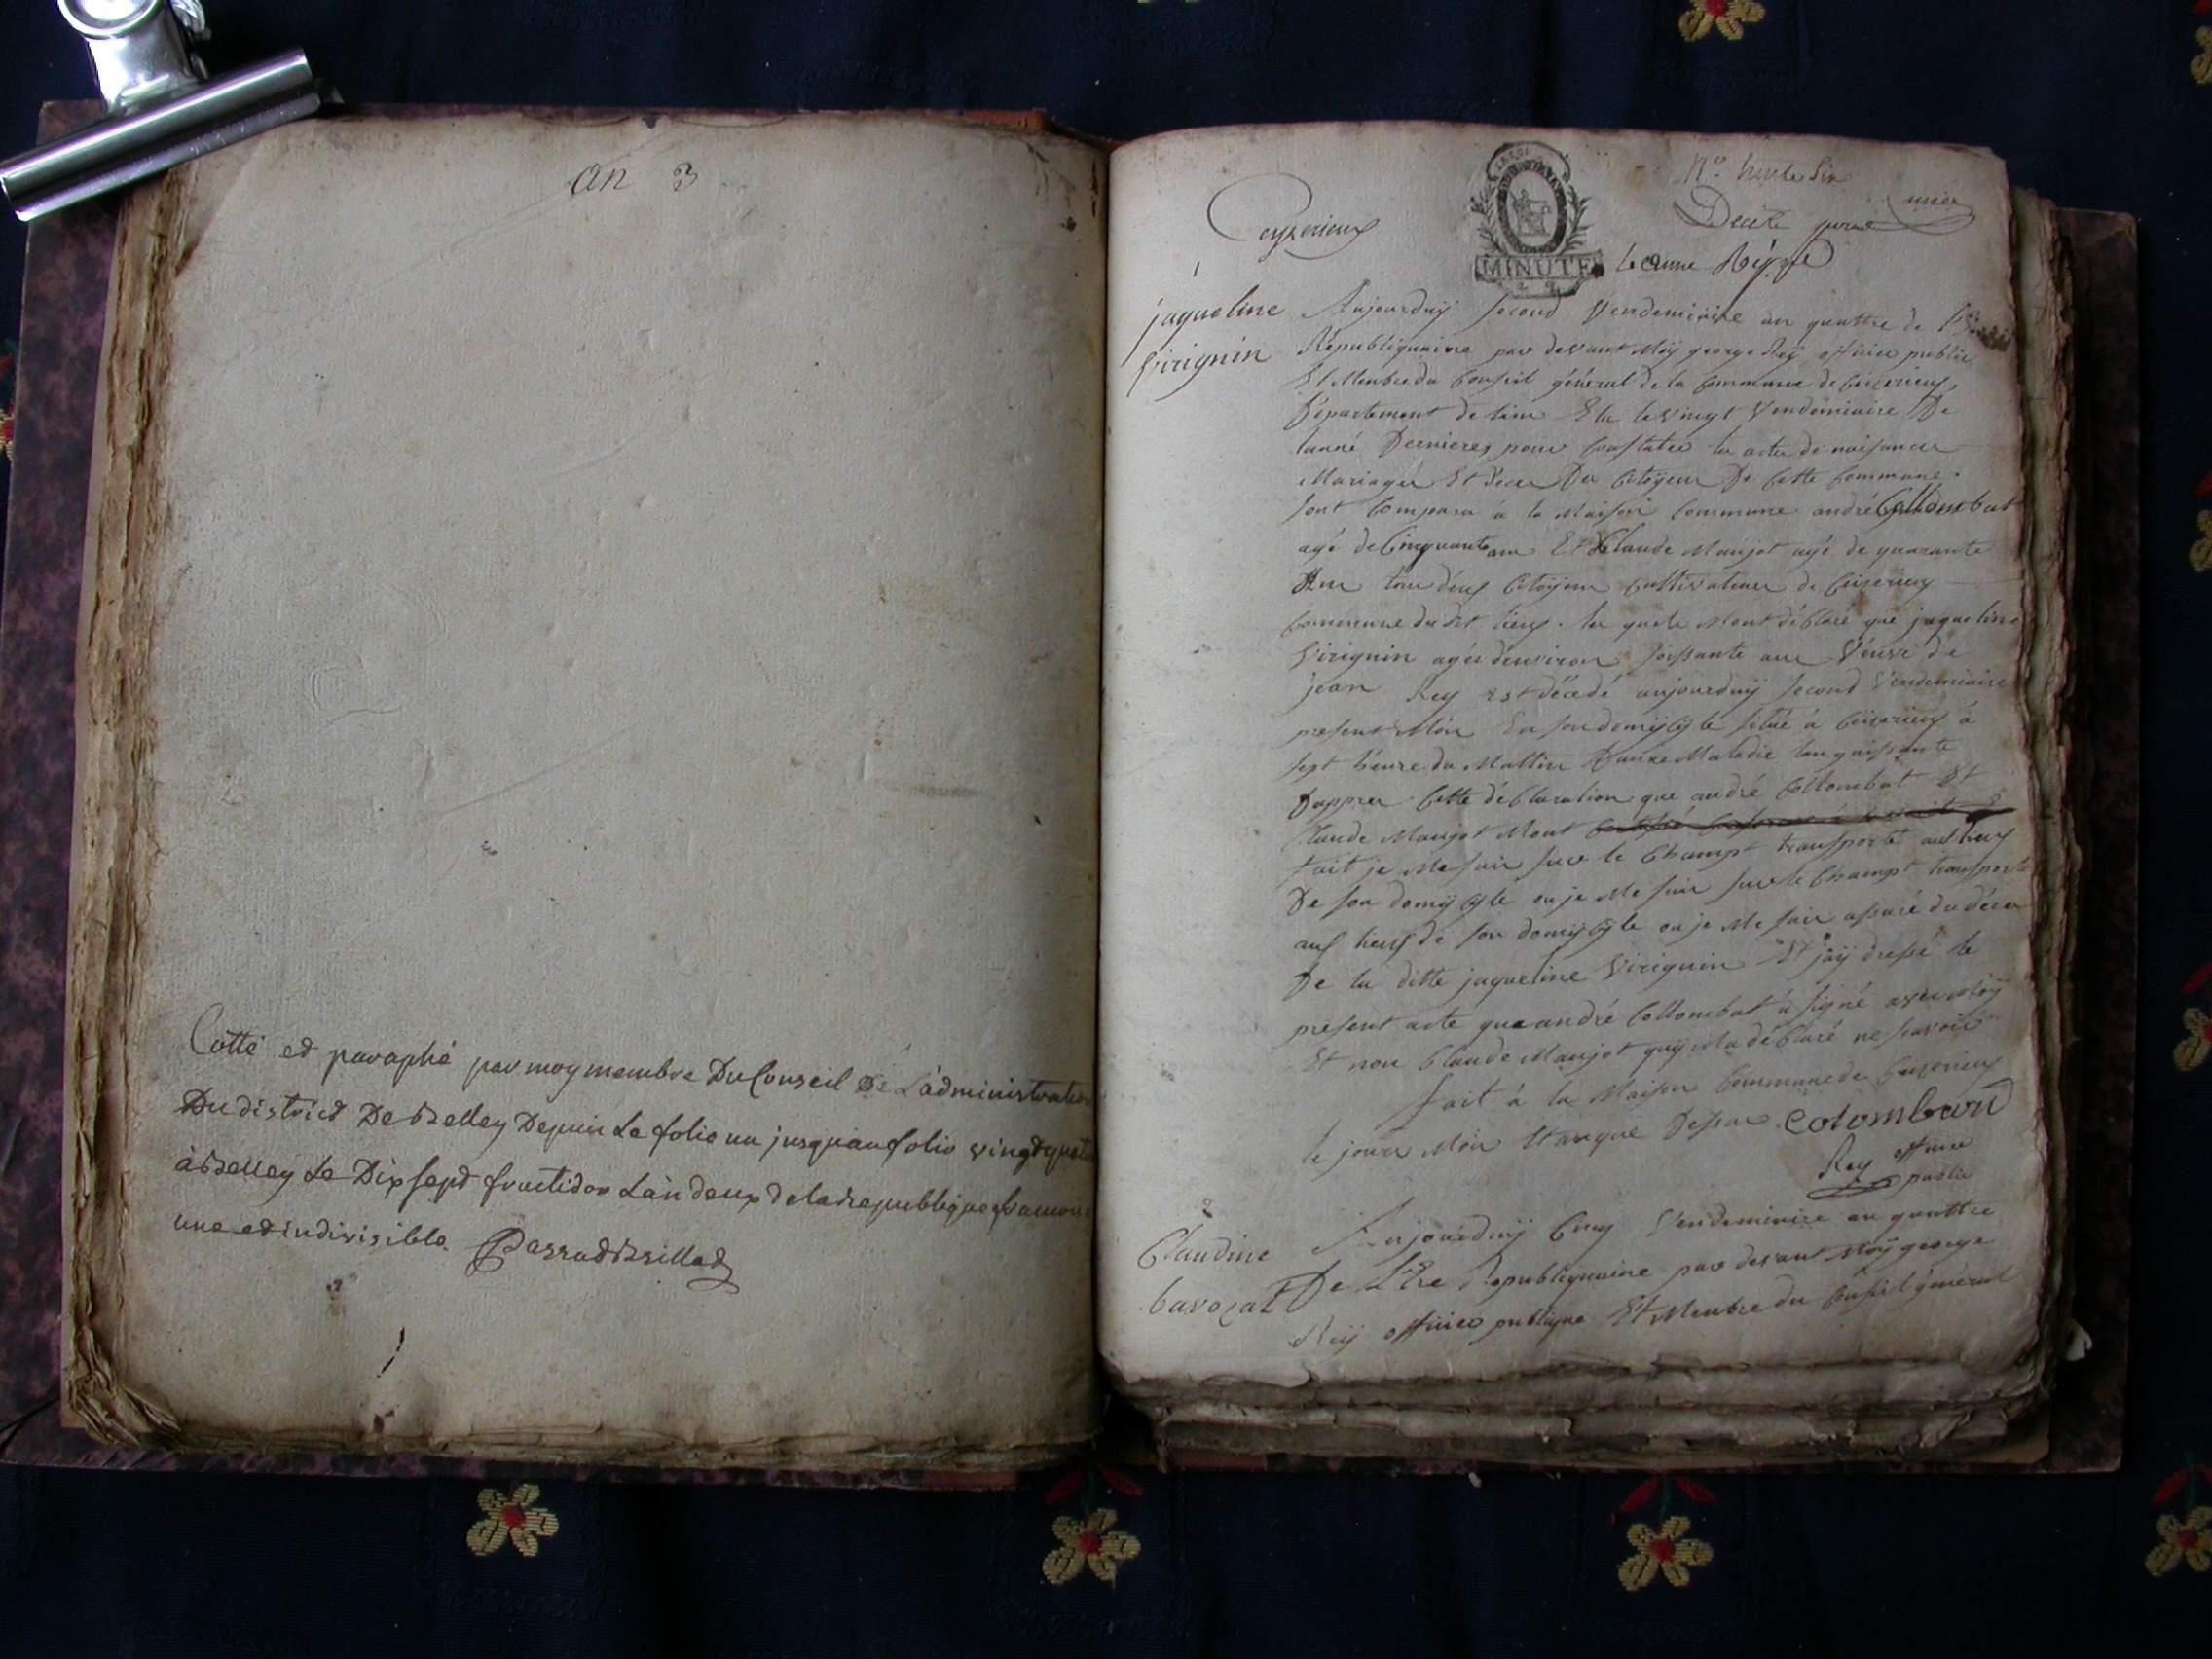 an 3
Cotté et paraphé par moy membre Du Conseil De L'administration
Du district De Belley Depuis Le folio un jusqu'au folio vingt quatre
à Belley Le Dix sept fructidor L'an deux de la republique francoise
une et indivisible.
Ceyzerieux
MINUTE
N.º
jaqueline
Virignin
Aujourduÿ second Vendemiaire an quattre de
Républiquaine par devant Moÿ george Reÿ officier public
Et Menbre du Conseil général de la Commune de Ceizerieux,
Département de lain Elu le vingt Vendémiaire De
lanné Dernieres pour Constater les actes de naissances
Mariages Et déces Des Citoÿens De Cette Commune
sont Comparu à la Maison Commune andré Collombat
agé de Cinquante ans Et Claude Maujot agé de quarante
Ans tous deux Citoÿens Cultivateurs de Ceizerieux
Commune du dit lieux. les quels Mont déClaré que jaqueline
Virignin agés denviron soissante ans Veuve de
jean Rey est décedé aujourduÿ second Vendemiaire
present Mois En son domÿcÿle situé à Ceizerieux à
sept heure du Mattin Daune Maladie languissante
Dapprer Cette déClaration que andré Collombat Et
Claude Maujot Mont
fait je Me suis sur le Champt transporté aux lieux
De son domÿcÿle ou je Me suis sur le Champt transporté
aux lieux de son domÿcÿle ou je Me suis assuré du déces
De la ditte jaqueline Virignin Et jaÿ dressé le
présent acte que andré Collombat à signé avec Moÿ
Et non Claude Maujot quÿ Ma déClaré ne savoir
fait à la Maison Commune de Ceizerieux
le jours Mois Et an que Dessus Colomban
Rey officier
public
2
Claudine
bavozat
Aujourduÿ Cinq Vendemiaire an quattre
De L'Ere Republiquaine par devant Moÿ george
Reÿ officier publique Et Menbre du Conseil général